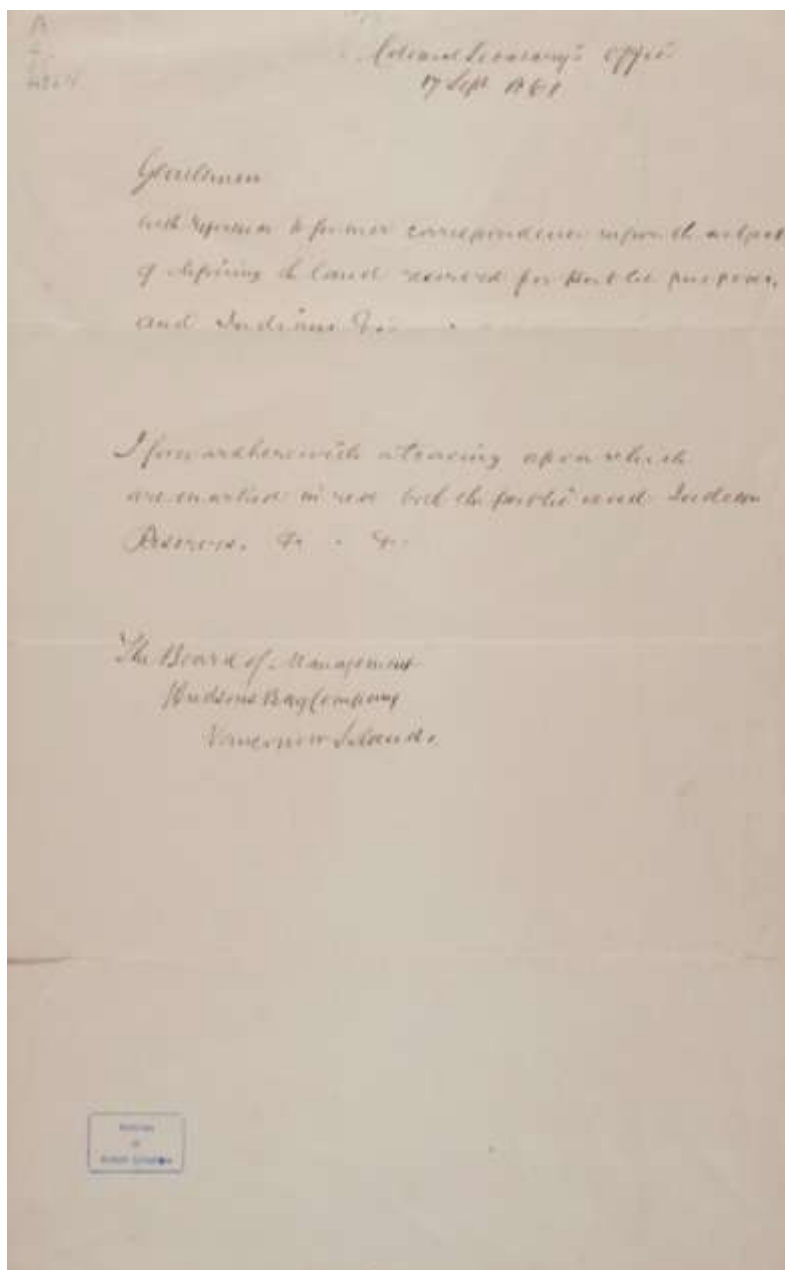 Colonial Secretary's Office
17 Sept 1861
Gentlemen
with reference to former correspondence upon the subject
of defining the land reserved for Public purposes,
and Indians &c.
I forward herewith a tracing upon which
are marked in red both the public and Indian
Reserves. &c. &c.
The Board of Management
Hudsons Bay Company
Vancouver Island.
Archives
of
British Columbia